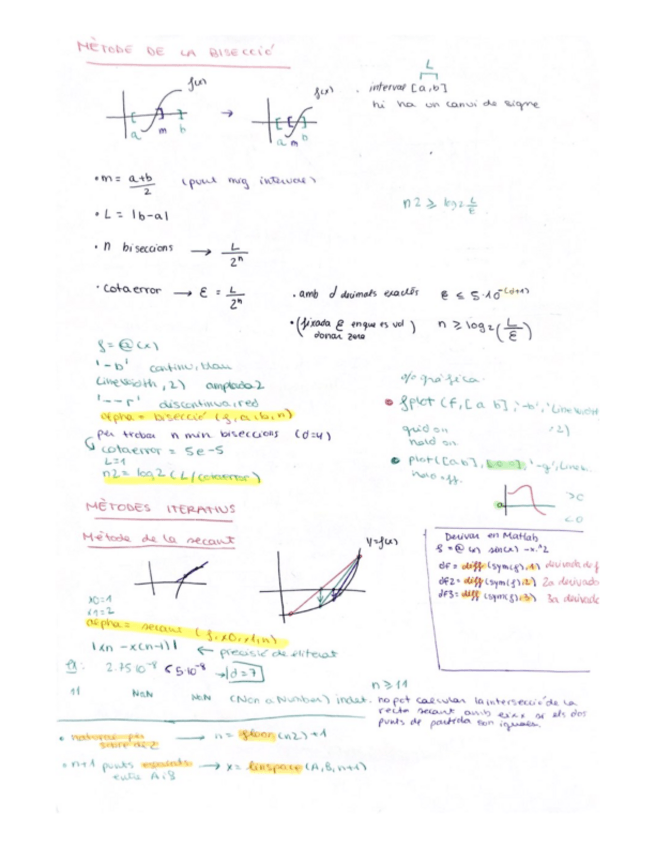 MÈTODE DE LA BISECCIÓ
L
f(x)
f(x)
· interval [a,b]
hi ha un canvi de signe
a m b
→
a m b
· m = a+b
2
(punt mig interval)
· L = |b-a|
n2 ≥ log2 L/ε
· n biseccions → L/2ⁿ
· cota error → ε = L/2ⁿ
· amb d decimals exactes ε ≤ 5·10^-(d+1)
· (fixada ε en que es vol donar zero) n ≥ log2 (L/ε)
f = @(x)
'-b' continu, blau
LineWidth, 2) amplada 2
'--r' discontinua, red
alpha = biseccio (f,a,b,n)
per trobar n min biseccions (d=4)
cotaerror = 5e-5
L=1
n2 = log2 (L/cotaerror)
gráfica
fplot (f,[a b],'-b','LineWidth
,2)
grid on
hold on
plot([a,b],[0 0],'-g',Linew.
hold off.
a
>0
<0
MÈTODES ITERATIUS
Mètode de la secant
y=f(x)
x0=1
x1=2
alpha = secant (f,x0,x1,n)
|xn - x(n-1)| ← precisió de
Derivar en Matlab
f = @(x) sin(x) -x.^2
df = diff (sym(f),1) derivada de f
df2 = diff (sym(f),2) 2a derivada
df3 = diff (sym(f),3) 3a derivada
eg: 2.75·10⁻⁸ < 5·10⁻⁸ → d=7
n ≥ 11
11 NaN NaN (Non a Number) indet. no pot calcular la intersecció de la
recta secant amb eix x si els dos
punts de partida son iguals.
· natural per sobre de 2 → n = floor (n2) +1
· n+1 punts espaiats entre A i B → x = linspace (A,B,n+1)